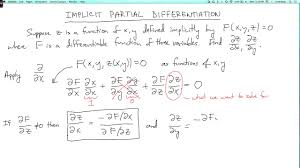 IMPLICIT PARTIAL DIFFERENTIATION
Suppose z is a function of x,y defined implicitly by F(x,y,z)=0
where F is a differentiable function of three variables. Find ∂z/∂x, ∂z/∂y
Apply ∂/∂x F(x,y,z)=0 as functions of x,y
∂F/∂x ∂x/∂x + ∂F/∂y ∂y/∂x + ∂F/∂z ∂z/∂x = 0
1 0 what we want to solve for
If ∂F/∂z ≠ 0 then ∂z/∂x = -∂F/∂x / ∂F/∂z and ∂z/∂y = -∂F